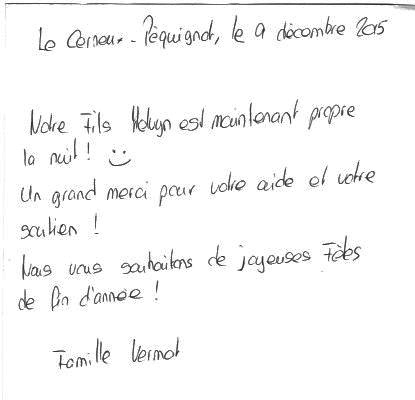 Le Cerneux-Péquignot, le 9 décembre 2015
Notre Fils Melvyn est maintenant propre
la nuit !
Un grand merci pour votre aide et votre
soutien !
Nous vous souhaitons de joyeuses Fêtes
de fin d'année !
Famille Vermot